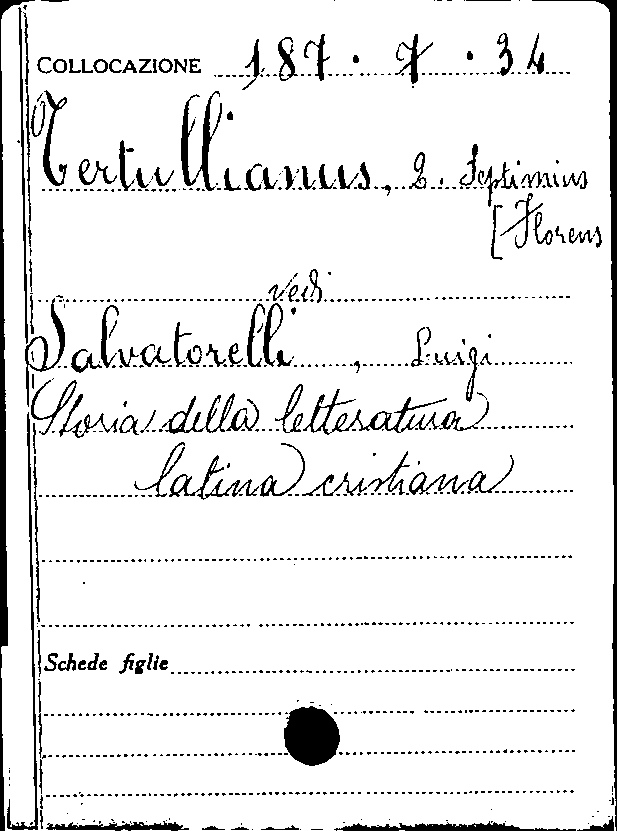 COLLOCAZIONE 187. 7. 34
Tertullianus, Q. Septimius
[Florens
vedi
Salvatorelli, Luigi
Storia della letteratura
latina cristiana
Schede figlie